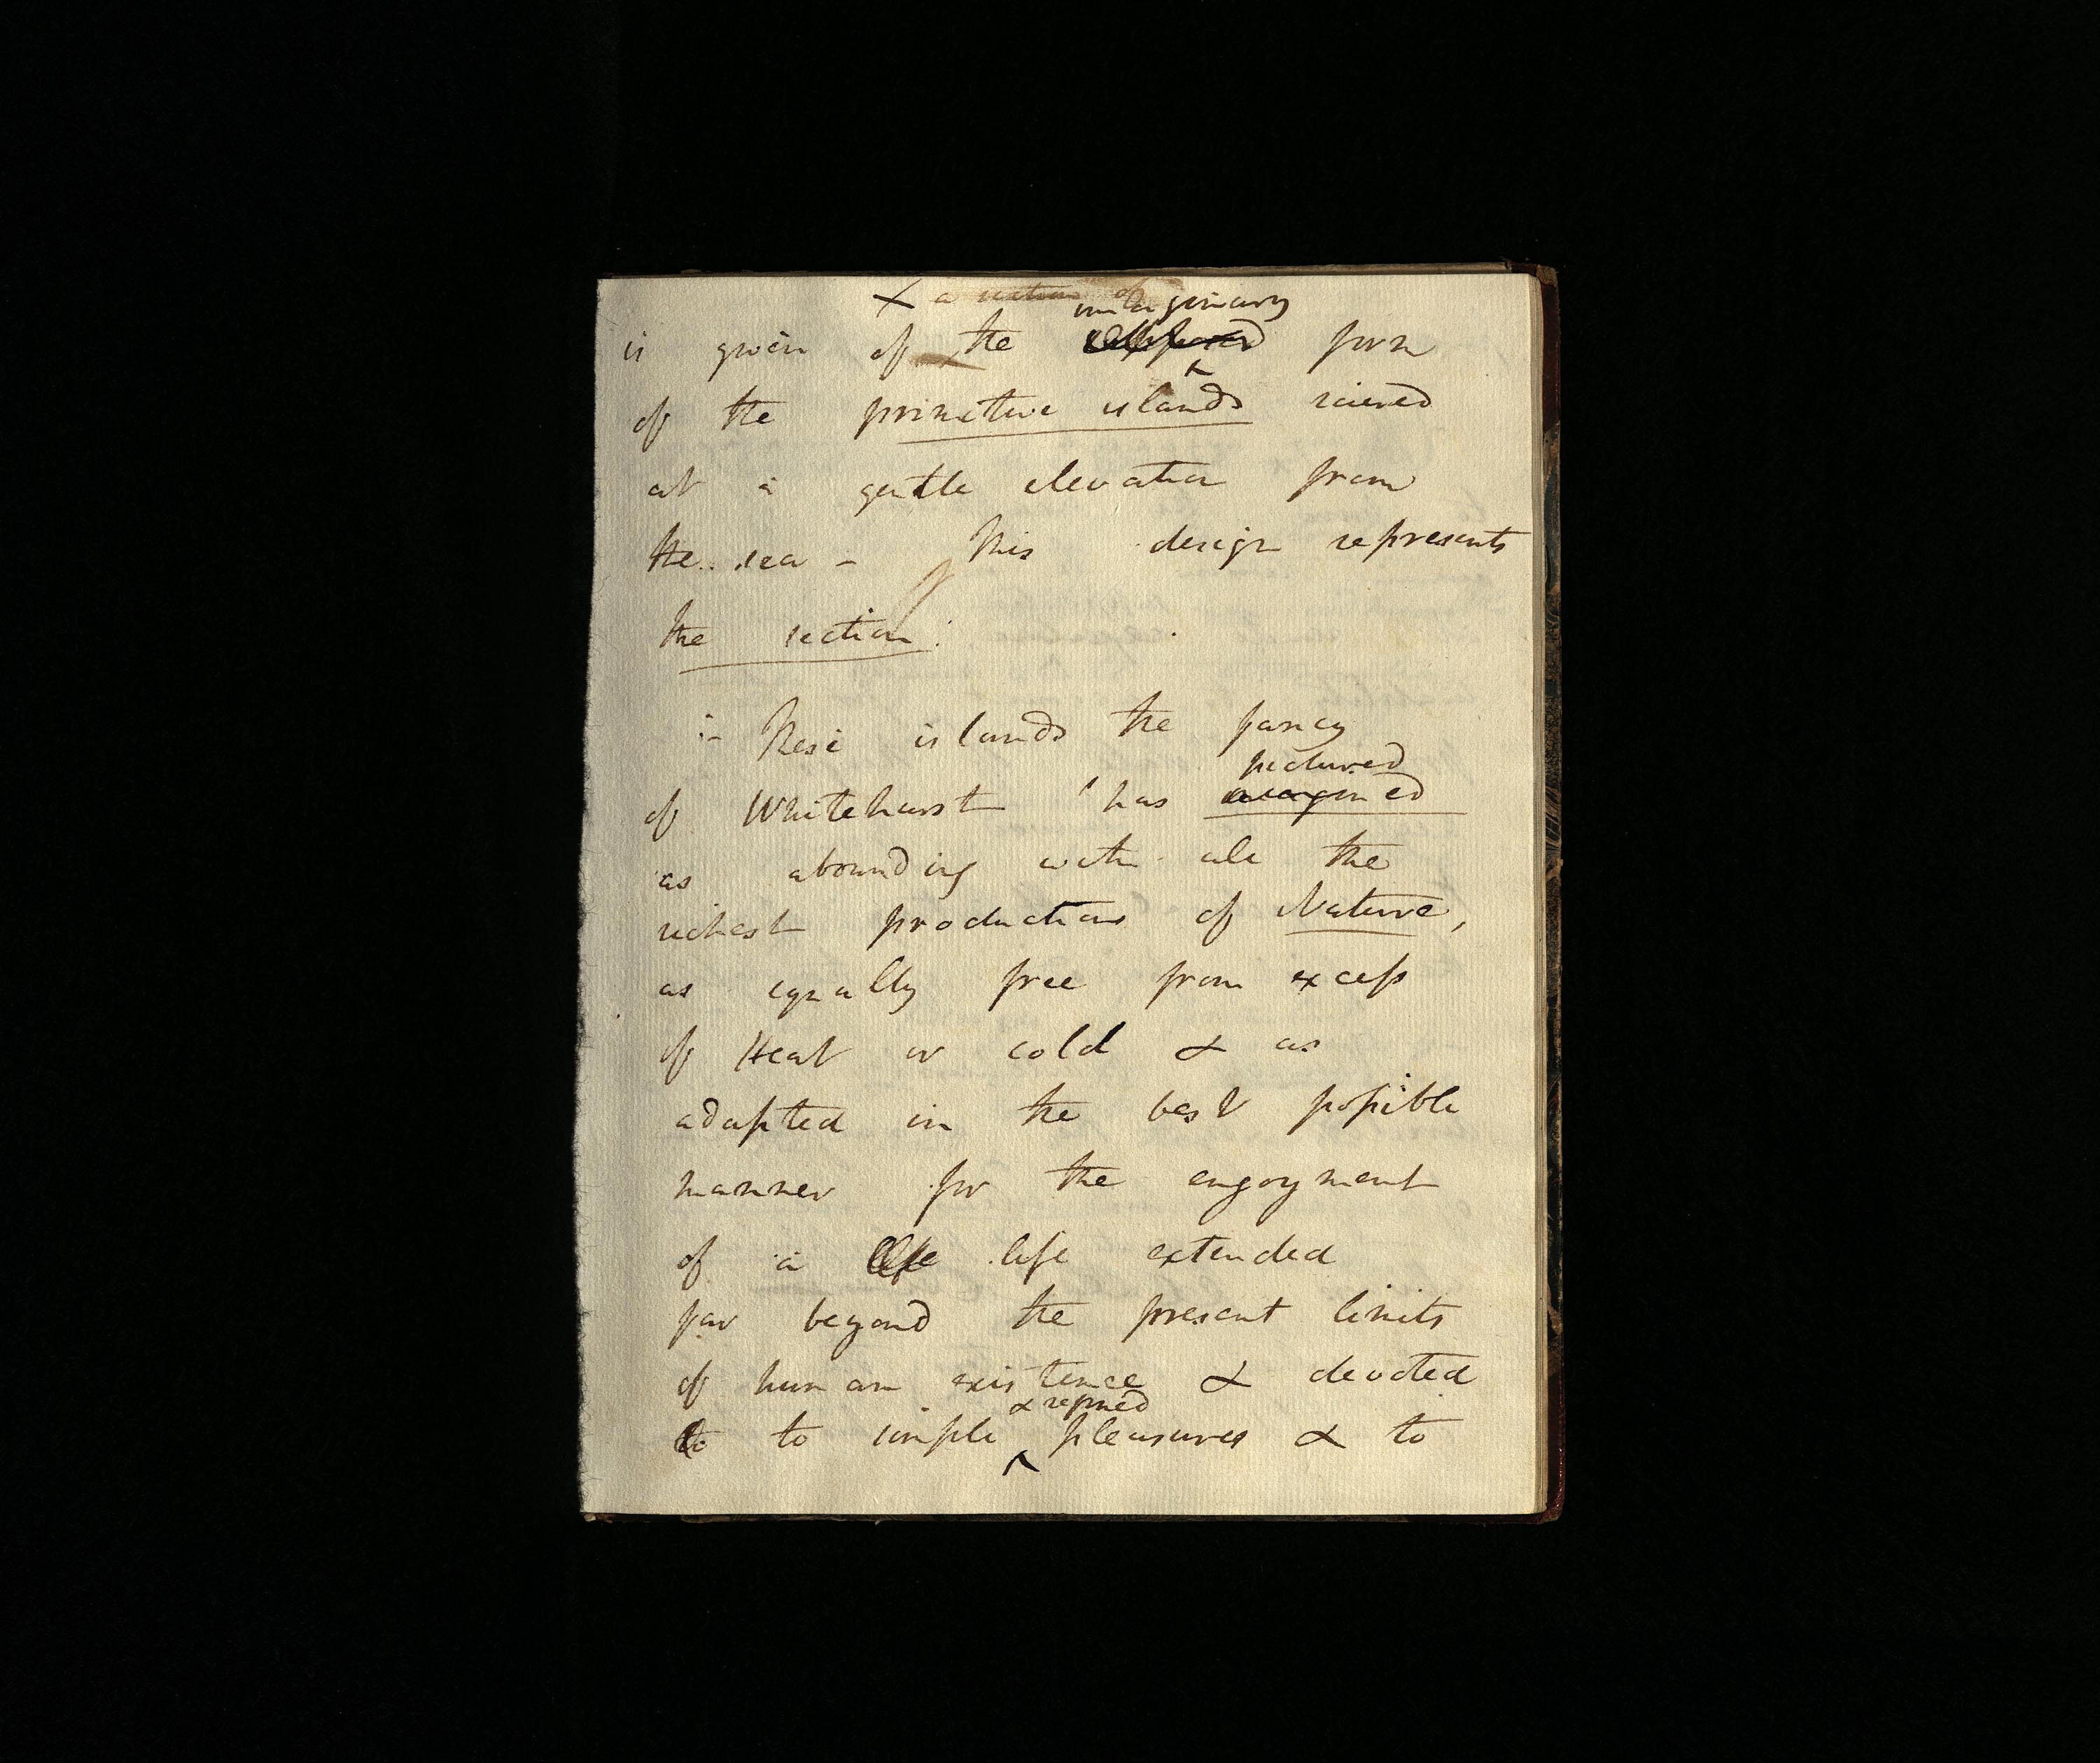 X a section of
imaginary
is given of the supposed form
of the primitive islands raised
at a gentle elevation from
the sea - This design represents
the section:
:- These islands the fancy
pictured
of Whitehurst has imagined
as abounding with all the
richest productions of Nature,
as equally free from excess
of Heat or cold & as
adapted in the best possible
manner for the engoyment
of a life life extended
far beyond the present limits
of human existence & devoted
& refined
to to simple ^ pleasures & to